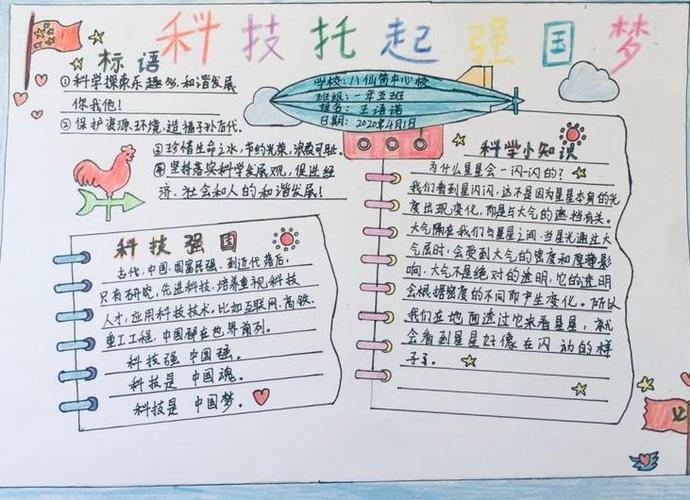 科技托起强国梦
标语
①科学探索乐趣多,和谐发展
你我他!
②保护资源环境,造福子孙后代.
③珍惜生命之水,节约光荣,浪费可耻.
④坚持落实科学发展观,促进经
济、社会和人的和谐发展!
学校:八仙筒中心校
班级:一年五班
姓名:王语诺
日期:2020年4月1日
科技强国
古代,中国,国富民强,到近代落后,
只有研究,先进科技,培养重视,科技
人才,应用科技技术.比如互联网,高铁,
重工工程,中国都在世界前列.
科技强 中国强.
科技是 中国魂.
科技是 中国梦.
科学小知识
为什么星星会一闪一闪的?
我们看到星闪闪,这不是因为星星本身的光
度出现变化,而是与大气的遮挡有关.
大气隔在我们与星星之间,当星光通过大
气层时,会受到大气的密度和厚薄影
响.大气不是绝对的透明,它的透明
会根据密度的不同而产生变化.所以
我们在地面透过它来看星星,就
会看到星星好像在闪动的样
子了.